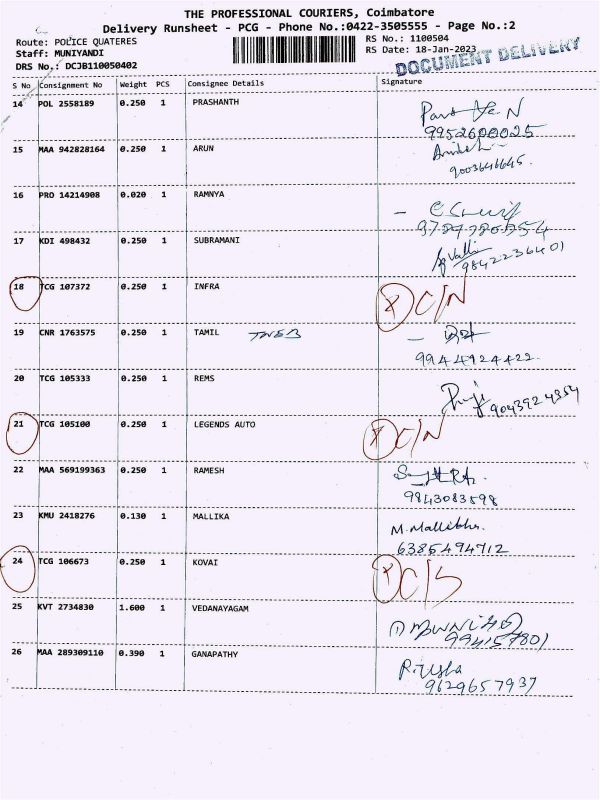 THE PROFESSIONAL COURIERS, Coimbatore
Delivery Runsheet - PCG - Phone No.:0422-3505555 - Page No.:2
Route: POLICE QUATERES
RS No.: 1100504
Staff: MUNIYANDI
RS Date: 18-Jan-2023
DRS No.: DCJB110050402
DOCUMENT DELIVERY
S No Consignment No Weight PCS Consignee Details Signature
14 POL 2558189 0.250 1 PRASHANTH
9952600025
15 MAA 942828164 0.250 1 ARUN
9003646645.
16 PRO 14214908 0.020 1 RAMNYA
17 KDI 498432 0.250 1 SUBRAMANI
9842236401
18 TCG 107372 0.250 1 INFRA X C/N
19 CNR 1763575 0.250 1 TAMIL TNEB
9944924422.
20 TCG 105333 0.250 1 REMS
9043924354
21 TCG 105100 0.250 1 LEGENDS AUTO X C/N
22 MAA 569199363 0.250 1 RAMESH
9843083598
23 KMU 2418276 0.130 1 MALLIKA M.Mallikha.
6385494712
24 TCG 106673 0.250 1 KOVAI X C/S
25 KVT 2734830 1.600 1 VEDANAYAGAM
26 MAA 289309110 0.390 1 GANAPATHY R.Usha
9629657937